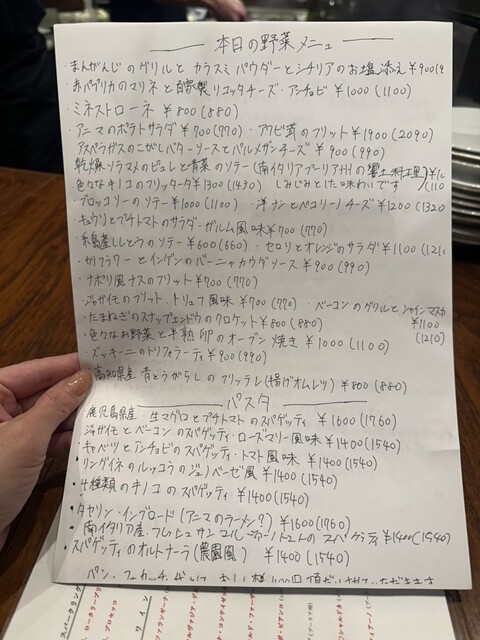 本日の野菜メニュー
・まんがんじのグリルとカラスミパウダーとシチリアのお塩添え ¥900(9
・赤パプリカのマリネと自家製リコッタチーズ・アンチョビ ¥1000(1100)
・ミネストローネ ¥800(880)
・アニマのポテトサラダ ¥700(770) ・アワビ茸のフリット ¥1900(2090)
アスペラガスのこがしバターソースとパルメザンチーズ ¥900(990)
乾燥ソラマメのピュレと青菜のソテー(南イタリアプーリア州の郷土料理)¥10
(110
色々なキノコのフリッタータ¥1300(1430) しみじみとした味わいです
・ブロッコリーのソテー¥1000(1100) ・洋ナシとペコリーノチーズ ¥1200(1320
・キュウリとプチトマトのサラダ・ガルム風味 ¥700(770)
・糸島産ししとうのソテー¥600(660) ・セロリとオレンジのサラダ ¥1100(1210
・カリフラワーとインゲンのバーニャカウダソース ¥900(990)
・ナポリ風ナスのフリット¥700(770)
・ジャガイモのフリット トリュフ風味 ¥700(770) ・ベーコンのグリルとシャインマスカ
¥1100
(1210)
・たまねぎのスナップエンドウのクロケット¥800(880)
・色々なお野菜と半熟卵のオーブン焼き ¥1000(1100)
・ズッキーニのトリフォラーティ¥900(990)
高知県産 青とうがらしのフリッテレ(揚げオムレツ) ¥800(880)
パスタ
鹿児島県産・生マグロとプチトマトのスパゲッティ ¥1600(1760)
ジャガイモとベーコンのスパゲッティ・ローズマリー風味 ¥1400(1540)
・キャベツとアンチョビのスパゲッティ・トマト風味 ¥1400(1540)
・リングイネのルッコラのジェノベーゼ風 ¥1400(1540)
・4種類のキノコのスパゲッティ ¥1400(1540)
・タヤリン・インブロード(アニマのラーメン?) ¥1600(1760)
・南イタリア産・フレッシュサンマルツァーノトマトのスパゲッティ ¥1400(1540)
・スパゲッティのオルトナーラ(農園風) ¥1400(1540)
スパークリング
ワイン